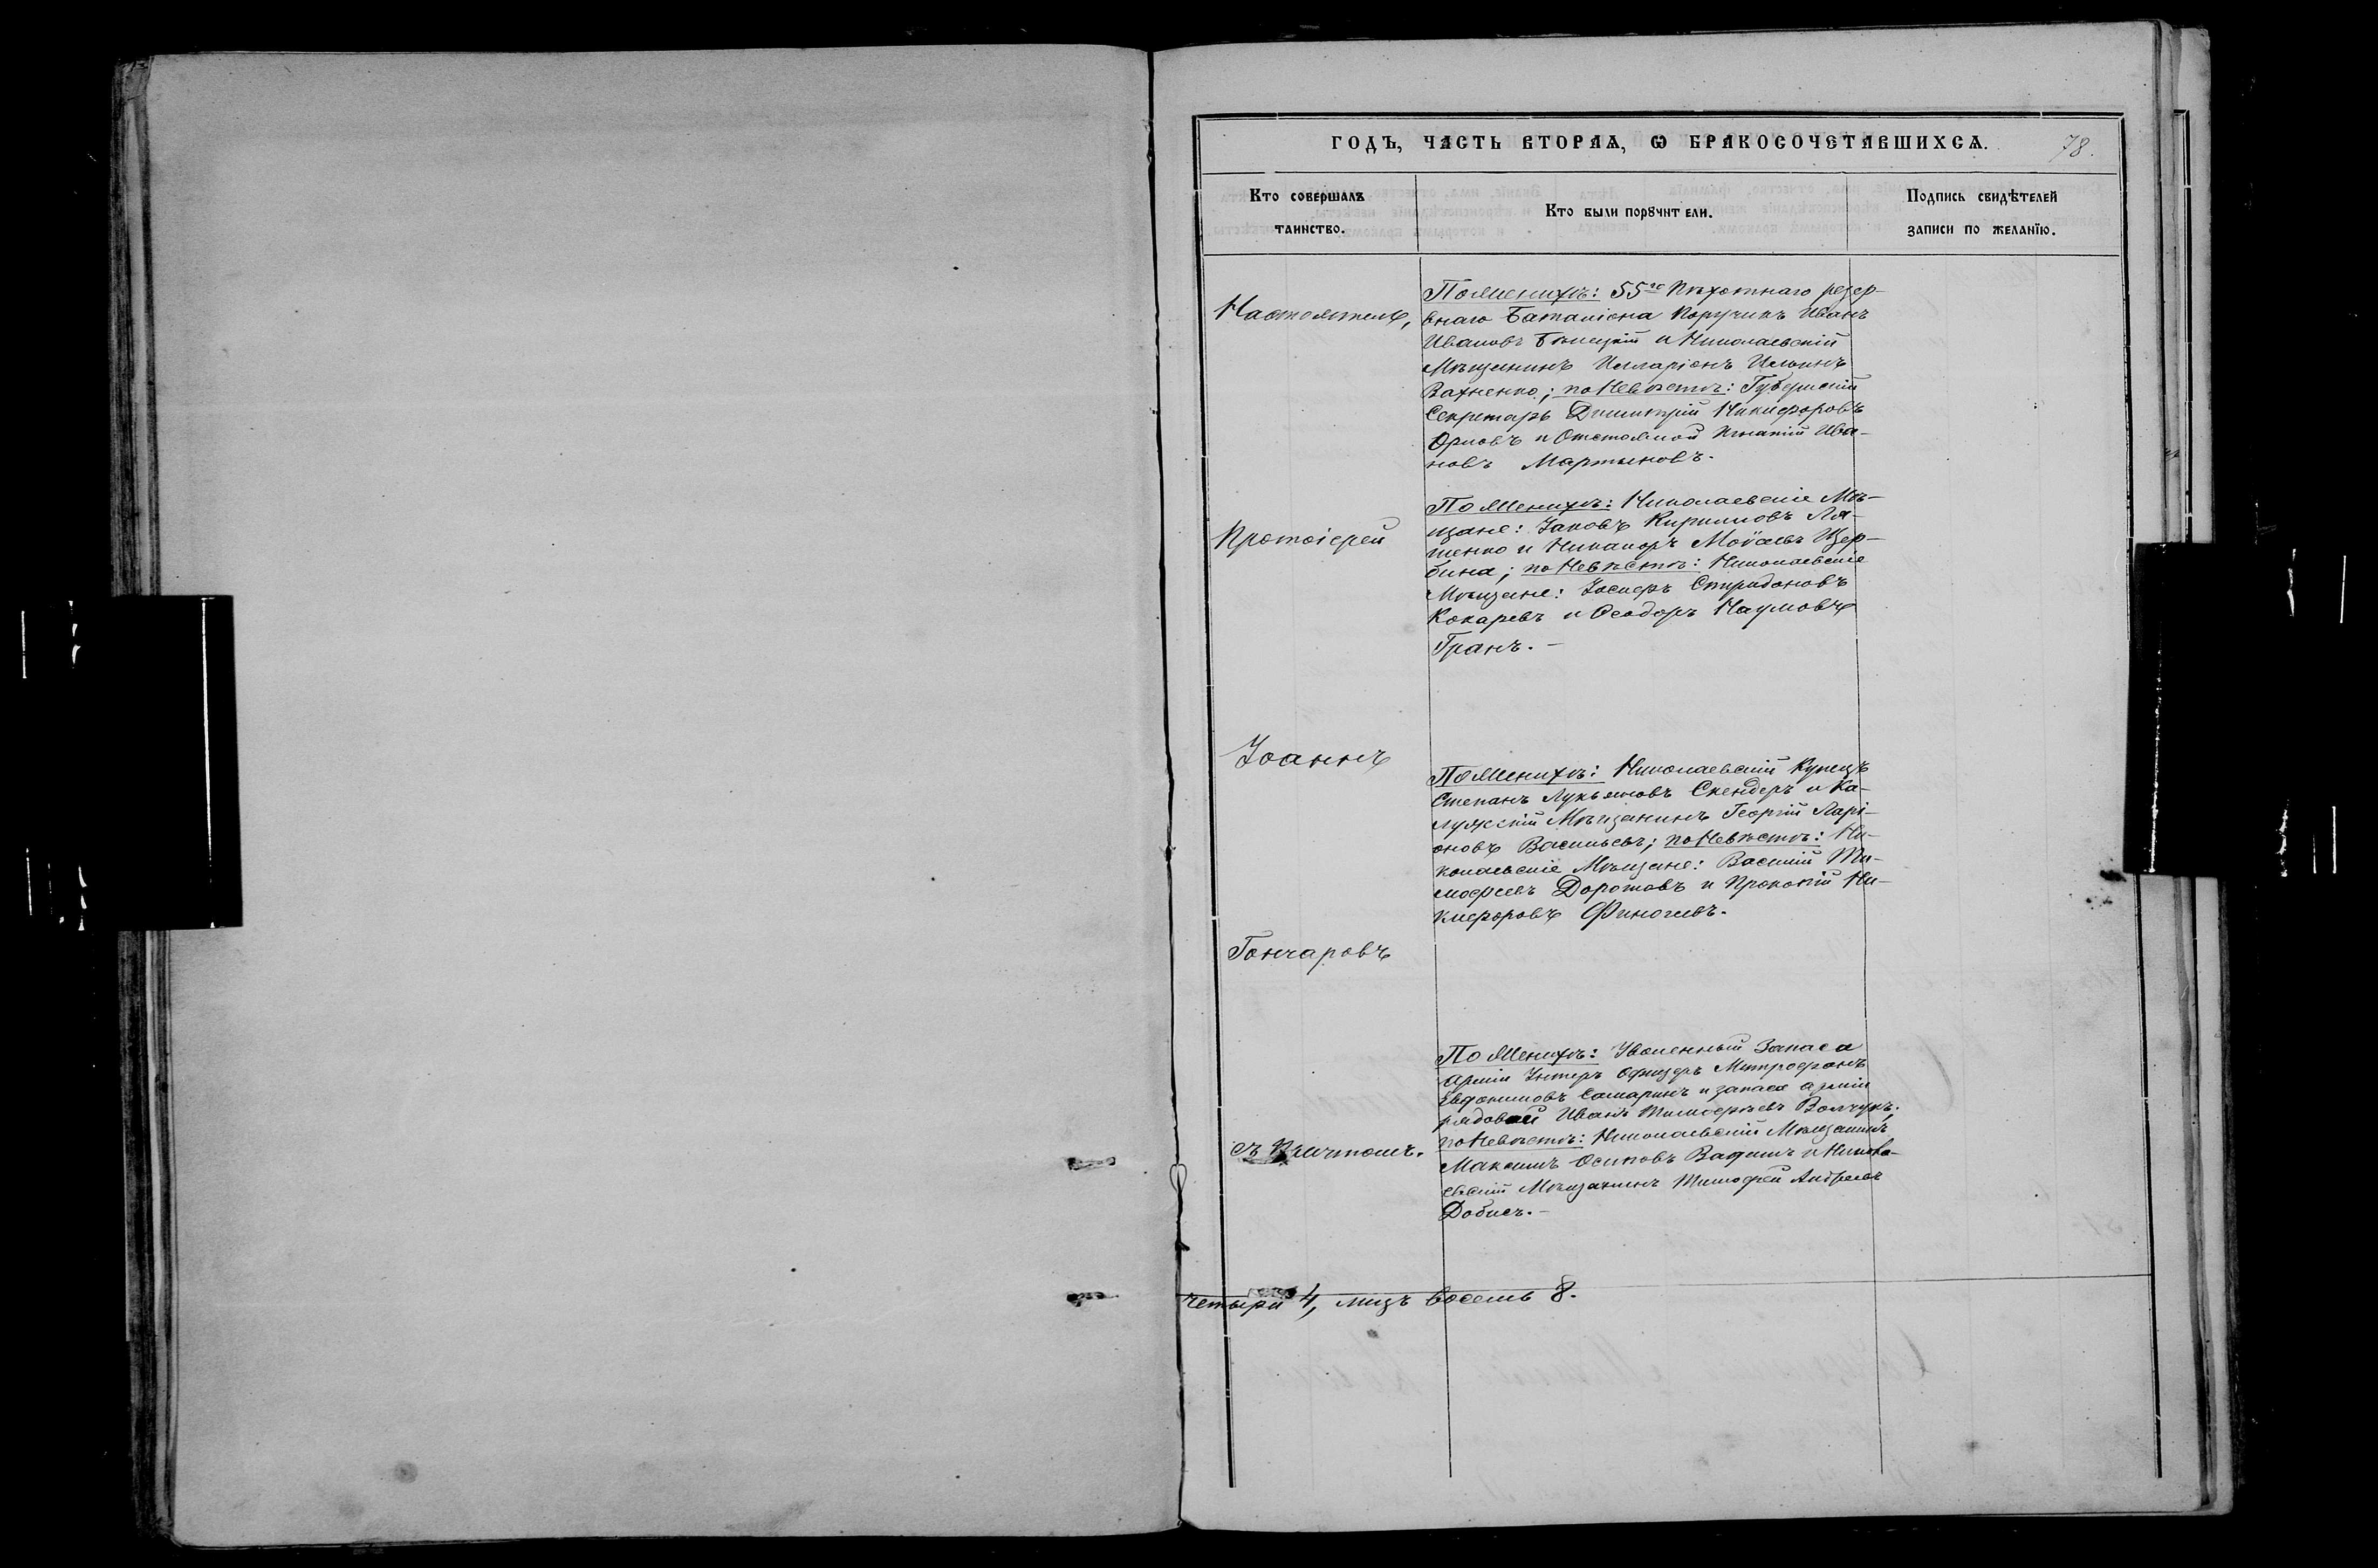 ГОДЪ, ЧАСТЬ ВТОРАѦ, Ѡ БРАКОСОЧЕТАВШИХСѦ.
78.
Кто совершалъ
таинство.
Кто были порꙋчители.
Подпись свидѣтелей
записи по желанїю.
Настоятель,
Протоіерей
Іоаннъ
Гончаровъ
съ Причтомъ.
По Женихѣ: 55го Пѣхотнаго резер-
внаго Баталіона Поручикъ Иванъ
Ивановъ и Николаевскій
Мѣщанинъ Илларіонъ Ильинъ
Вахненко; по Невѣстѣ: Губернскій
Секретарь Димитрій Никифоровъ
Орловъ и Отставной Игнатій Ива-
новъ Мартыновъ.
По Женихѣ: Николаевскіе Мѣ-
щане: Іаковъ Кирилловъ Ля-
шенко и Никаноръ Моѵсеевъ Щер-
бина; по Невѣстѣ: Николаевскіе
Мѣщане: Іосифъ Спиридоновъ
Кокаревъ и Ѳеодоръ Наумовъ
Гранъ.
По Женихѣ: Николаевскій Купецъ
Степанъ Лукьяновъ Скендеръ и Ка-
лужскій Мѣщанинъ Георгій Ларі-
оновъ Васильевъ; по Невѣстѣ: Ни-
колаевскіе Мѣщане: Василій Ти-
мофеевъ Доротовъ и Прокопій Ни-
кифоровъ Финогеевъ.
По Женихѣ: Уволенный Запаса
Арміи Унтеръ Офицеръ Митрофанъ
Евдокимовъ Самаринъ и запаса арміи
рядовой Иванъ Тимофѣевъ Волчукъ;
по Невѣстѣ: Николаевскій Мѣщанинъ
Максимъ Осиповъ и Никола-
евскій Мѣщанинъ Тимофей Андреевъ
Добисъ.
четыри 4, лицъ восемь 8.